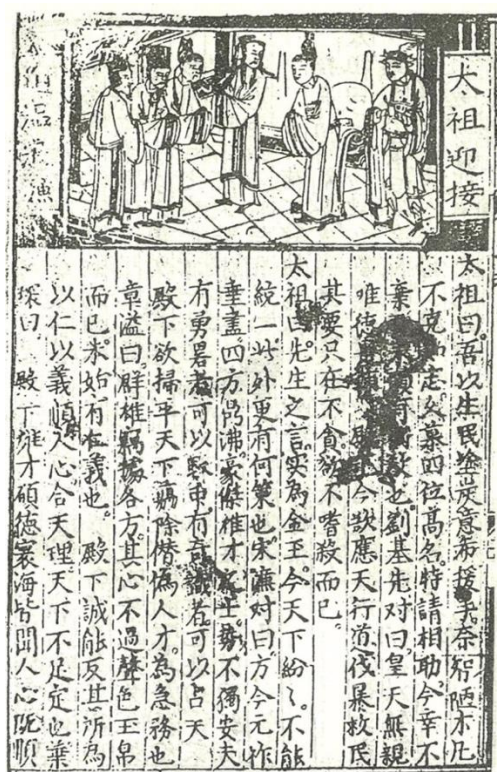 太祖迎接
太祖曰吾以生民塗炭意希援手奈智陋才凡
不克如志久慕四位高名特請相助今幸不
棄願教也劉基先对曰皇天無親
唯徳今欲應天行道伐暴救民
其要只在不貪欲不嗜殺而已。
太祖曰先生之言实為金玉今天下紛々。不能
統一此外更有何策也宋濂对曰方今元祚
垂盡四方鼎沸。豪傑雄才生勢不獨安夫
有勇畧者可以馭車有奇識者可以占天
殿下欲掃平天下蕩除僭偽人才。為急務也
章溢曰。群雄竊據各方。其心不過聲色玉帛
而已。未始有仁義也。 殿下誠能反此所為
以仁以義順人心合天理天下不足定也葉
琛曰 殿下雄才碩徳寰海皆聞人心既順